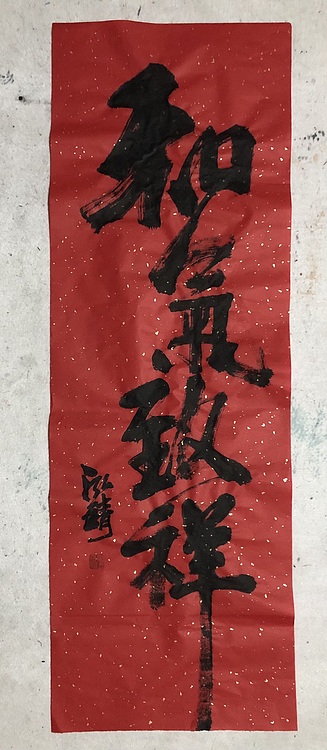 和氣致祥
泓錡